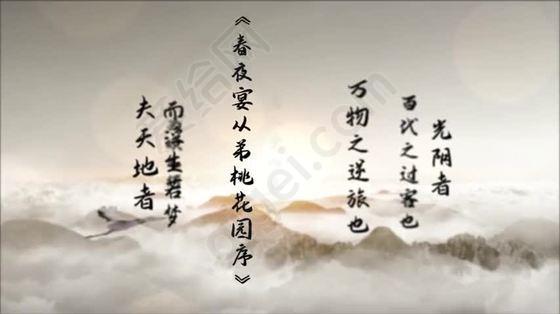 光阴者
百代之过客也
万物之逆旅也
《春夜宴从弟桃花园序》
而浮生若梦
夫天地者